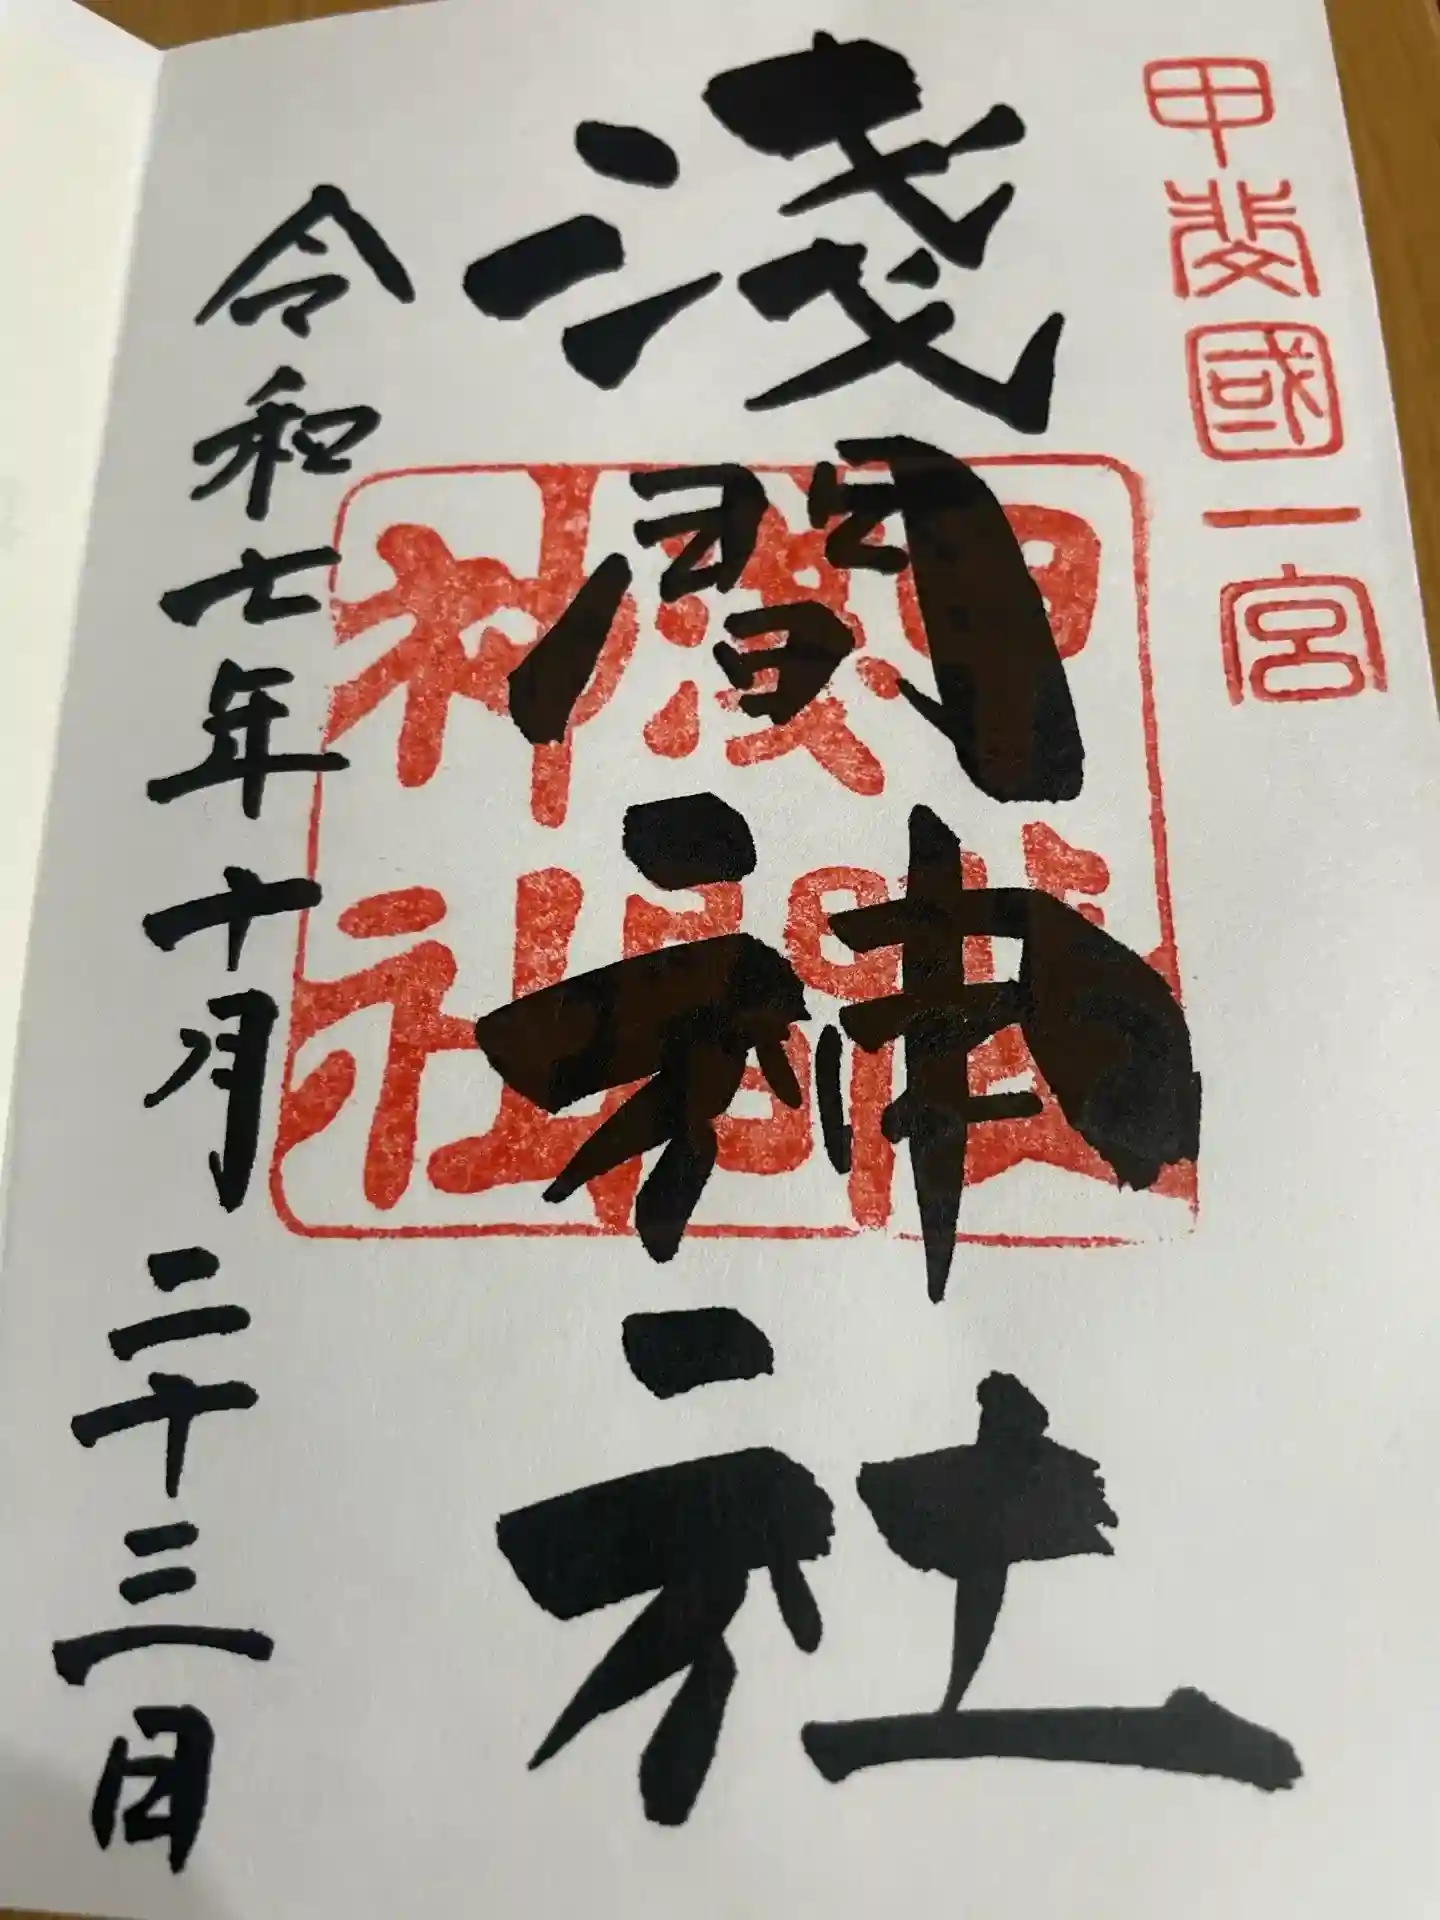 甲斐國一宮
淺間神社
甲斐
淺間
神社
令和七年十月二十三日